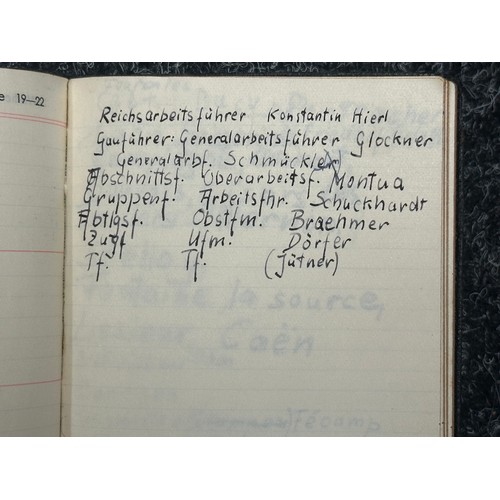 e 19—22
Reichsarbeitsführer Konstantin Hierl
Gauführer: Generalarbeitsführer Glockner
Generalarbf. Schmückler
Abschnittsf. Oberarbeitsf. Montua
Gruppenf. Arbeitsfhr. Schuckhardt
Abtlgsf. Obstfm. Braehmer
Zugf Ufm. Dörfer
Tf. Tf. (Jütner)
la source,
Caën
Fécamp